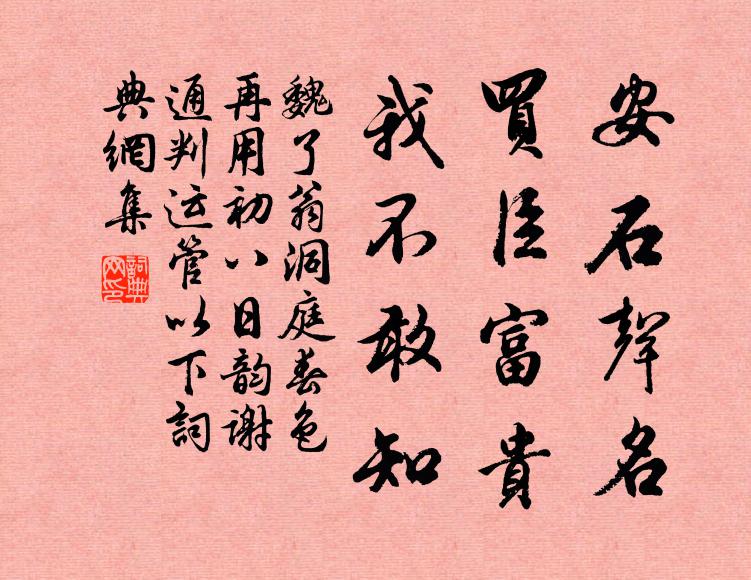 安石聲名
買臣富貴
我不敢知
魏了翁洞庭春色
再用初八日韵谢
通判运管以下詞
典網集
詞典網印